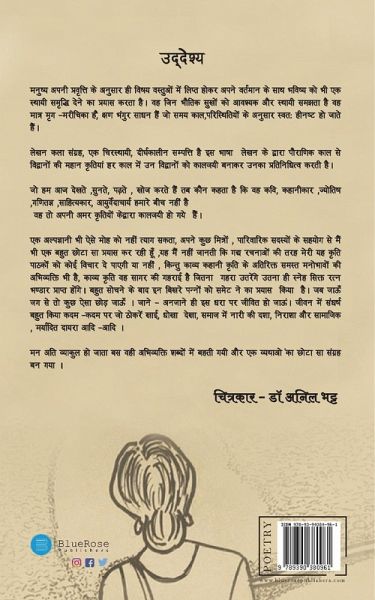 उद्देश्य
मनुष्य अपनी प्रवृत्ति के अनुसार ही विषय वस्तुओं में लिप्त होकर अपने वर्तमान के साथ भविष्य को भी एक
स्थायी समृद्धि देने का प्रयास करता है। वह जिन भौतिक सुखों को आवश्यक और स्थायी समझता है वह
मात्र मृग –मरीचिका हैं, क्षण भंगुर साधन हैं जो समय काल,परिस्थितियों के अनुसार स्वत: हीनष्ट हो जाते
हैं।
लेखन कला संग्रह, एक चिरस्थायी, दीर्घकालीन सम्पत्ति है इस भाषा लेखन के द्वारा पौराणिक काल से
विद्वानों की महान कृतियां हर काल में उन विद्वानों को कालजयी बनाकर उनका प्रतिनिधित्व करती है।
जो हम आज देखते ,सुनते, पढ़ते , खोज करते हैं तब कौन कहता है कि वह कवि, कहानीकार ,ज्योतिष
,गणितज्ञ ,साहित्यकार, आयुर्वेदाचार्य हमारे बीच नहीं है
वह तो अपनी अमर कृतियों केद्वारा कालजयी हो गये हैं।
एक अल्पज्ञानी भी ऐसे मोह को नहीं त्याग सकता, अपने कुछ मित्रों , पारिवारिक सदस्यों के सहयोग से मैं
भी एक बहुत छोटा सा प्रयास कर रही हूँ, यह मैं नहीं जानती कि गद्य रचनाओं की तरह मेरी यह कृति
पाठकों को कोई विचार दे पाएगी या नहीं , किन्तु काव्य कहानी कृति के अतिरिक्त समस्त मनोभावों की
अभिव्यक्ति भी है, काव्य कृति वह सागर की गहराई है जितना गहरा उतरेंगे उतना ही स्नेह सिक्त रत्न
भण्डार प्राप्त होंगे। बहुत सोचने के बाद इन बिखरे पन्नों को समेट ने का प्रयास किया है। जब जाऊँ
जग से तो कुछ ऐसा छोड़ जाऊँ । जाने – अनजाने ही इस धरा पर जीवित हो जाउं। जीवन में संघर्ष
बहुत किया कदम –कदम पर जो ठोकरें खाईं, धोखा देशा, समाज में नारी की दशा, निराशा और सामाजिक
, मर्यादित दायरा आदि –आदि ।
मन अति व्याकुल हो जाता बस यही अभिव्यक्ति शब्दों में बहती गयी और एक व्यथाओं का छोटा सा संग्रह
बन गया ।
चित्रकार – डॉ अनिल भट्ट
BlueRose
Publishers
POETRY
9 789390 380961
www.bluerosepublishers.com